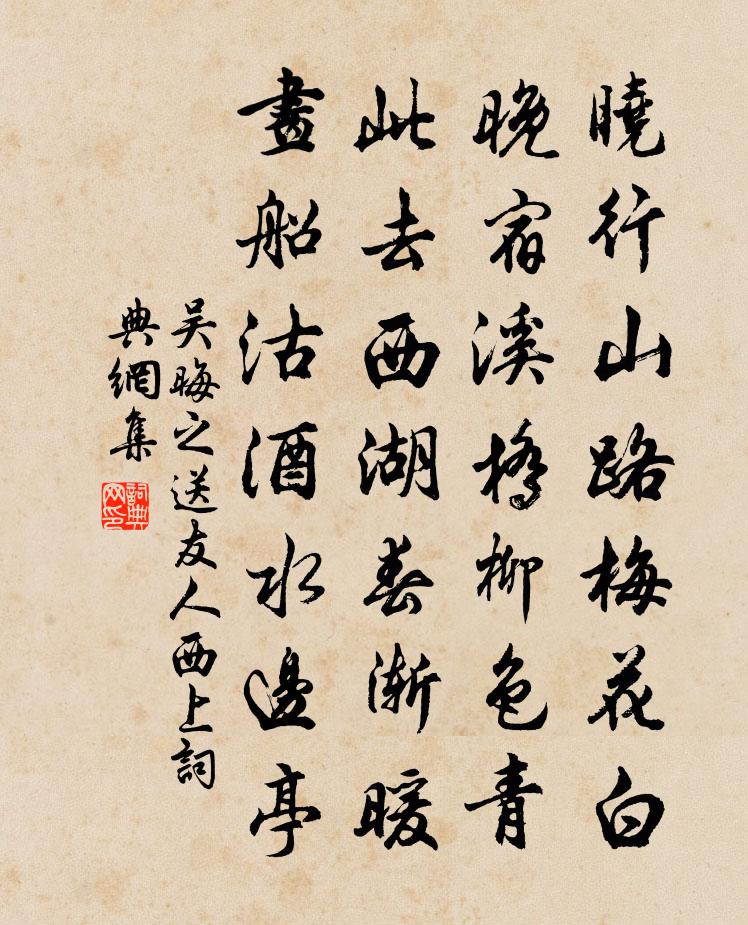 曉行山路梅花白
晚宿溪橋柳色青
此去西湖春漸暖
畫船沽酒水邊亭
吴晦之送友人西上詞
典網集
詞典
网印